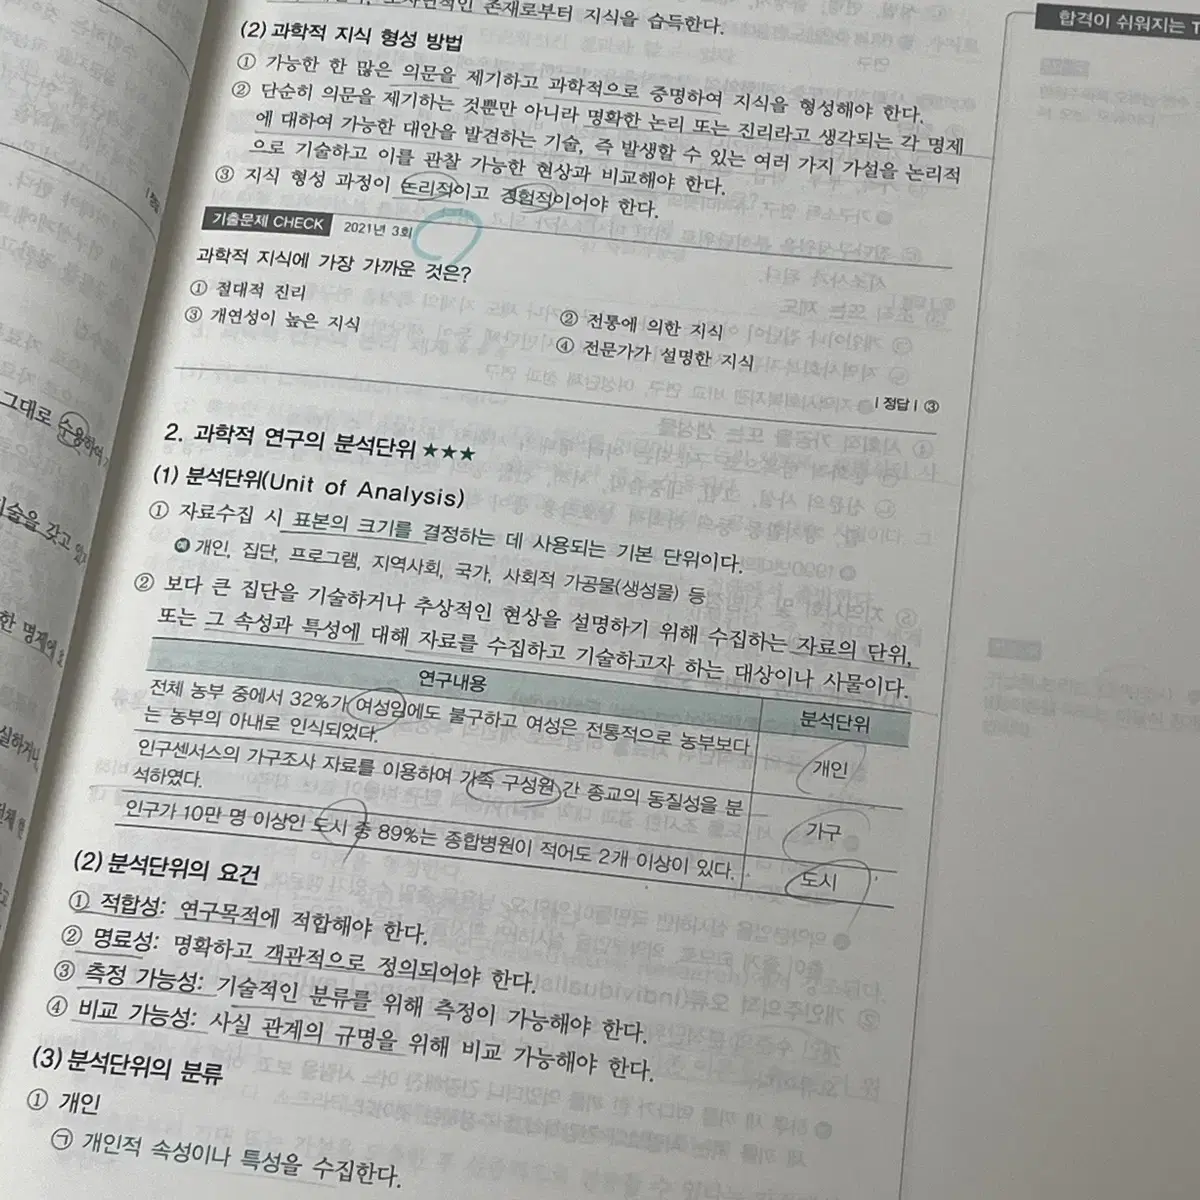 존재로부터 지식을 습득한다.
합격이 쉬워지는
(2) 과학적 지식 형성 방법
① 가능한 한 많은 의문을 제기하고 과학적으로 증명하여 지식을 형성해야 한다.
② 단순히 의문을 제기하는 것뿐만 아니라 명확한 논리 또는 진리라고 생각되는 각 명제
에 대하여 가능한 대안을 발견하는 기술, 즉 발생할 수 있는 여러 가지 가설을 논리적
으로 기술하고 이를 관찰 가능한 현상과 비교해야 한다.
③ 지식 형성 과정이 논리적이고 경험적이어야 한다.
기출문제 CHECK 2021년 3회
과학적 지식에 가장 가까운 것은?
① 절대적 진리
② 전통에 의한 지식
③ 개연성이 높은 지식
④ 전문가가 설명한 지식
| 정답 | ③
2. 과학적 연구의 분석단위 ★★★
(1) 분석단위(Unit of Analysis)
① 자료수집 시 표본의 크기를 결정하는 데 사용되는 기본 단위이다.
예 개인, 집단, 프로그램, 지역사회, 국가, 사회적 가공물(생성물) 등
② 보다 큰 집단을 기술하거나 추상적인 현상을 설명하기 위해 수집하는 자료의 단위,
또는 그 속성과 특성에 대해 자료를 수집하고 기술하고자 하는 대상이나 사물이다.
연구내용 분석단위
전체 농부 중에서 32%가 여성임에도 불구하고 여성은 전통적으로 농부보다
는 농부의 아내로 인식되었다.
개인
인구센서스의 가구조사 자료를 이용하여 가족 구성원 간 종교의 동질성을 분
석하였다.
가구
인구가 10만 명 이상인 도시 중 89%는 종합병원이 적어도 2개 이상이 있다.
도시
(2) 분석단위의 요건
① 적합성: 연구목적에 적합해야 한다.
② 명료성: 명확하고 객관적으로 정의되어야 한다.
③ 측정 가능성: 기술적인 분류를 위해 측정이 가능해야 한다.
④ 비교 가능성: 사실 관계의 규명을 위해 비교 가능해야 한다.
(3) 분석단위의 분류
① 개인
㉠ 개인적 속성이나 특성을 수집한다.
그대로 수용하여